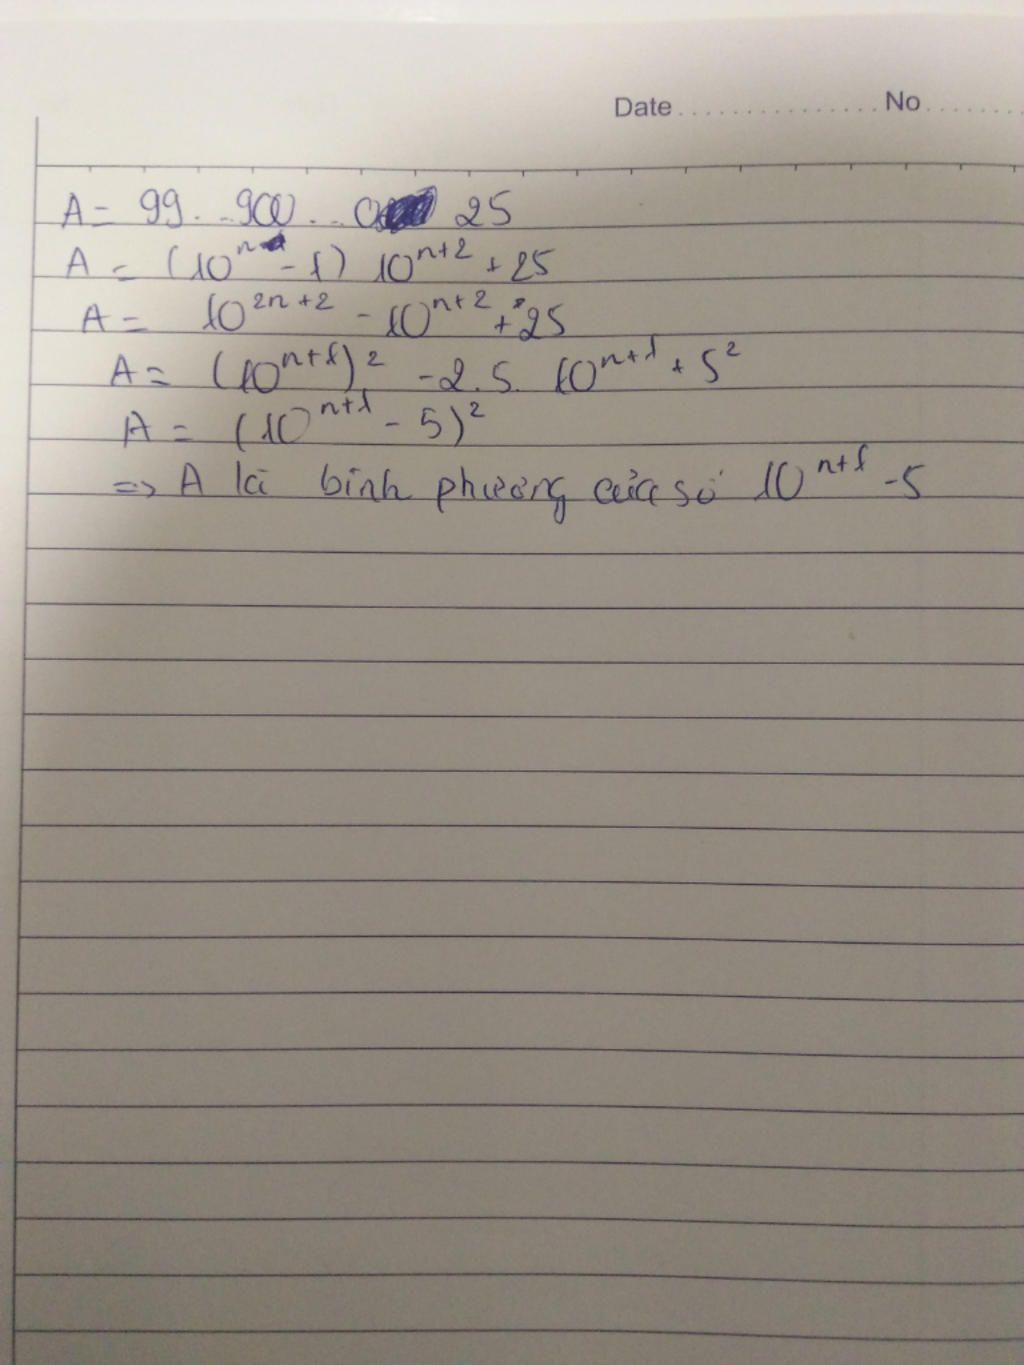 Date ............... No ........
A = 99...900...0 25
A = (10^n - 1) 10^{n+2} + 25
A = 10^{2n+2} - 10^{n+2} + 25
A = (10^{n+1})^2 - 2.5. 10^{n+1} + 5^2
A = (10^{n+1} - 5)^2
=> A là bình phương của số 10^{n+1} - 5